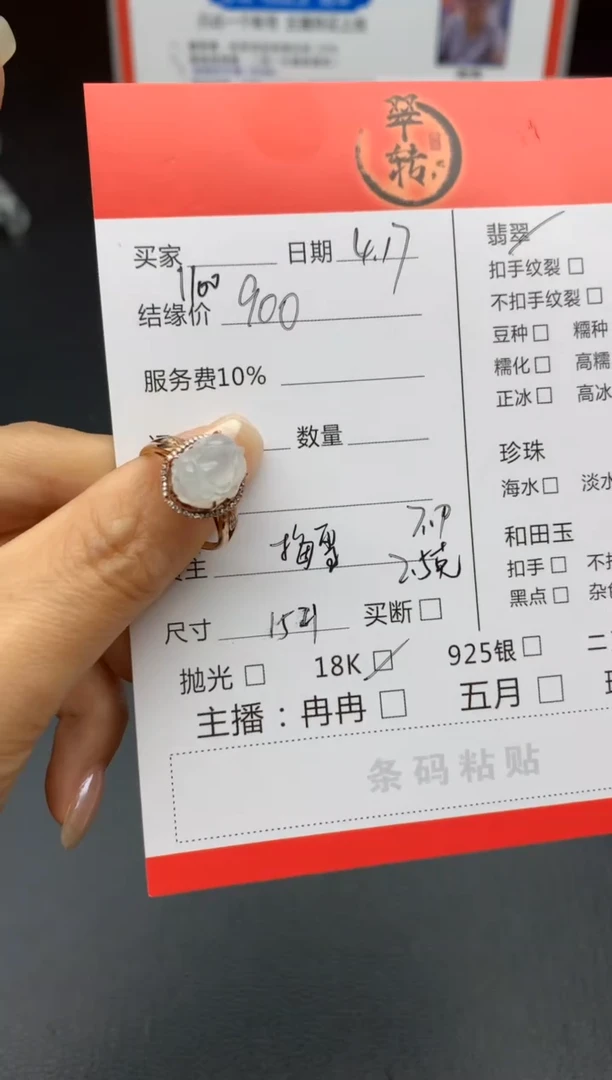 翠转
买家 日期 4.17
1100
结缘价 900
服务费10%
数量
主 梅雪 2.5克
尺寸 15 买断
抛光 18K 925银 二
主播：冉冉 五月
条码粘贴
翡翠
扣手纹裂
不扣手纹裂
豆种 糯种
糯化 高糯
正冰 高冰
珍珠
海水 淡水
和田玉
扣手
黑点